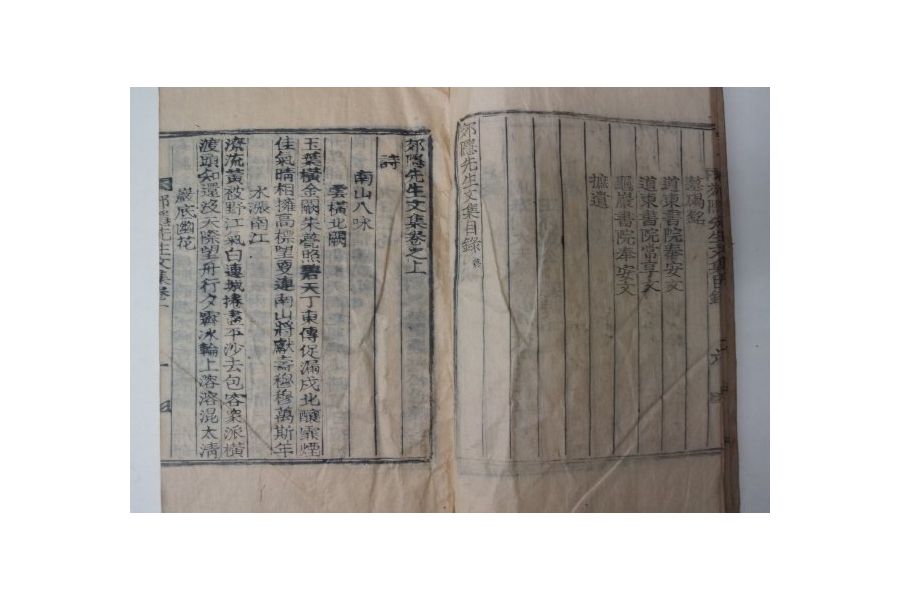 郊隱先生文集目錄
墓碣銘
道東書院奉安文
道東書院常享文
巖書院奉安文
摭遺
郊隱先生文集目錄 終
郊隱先生文集卷之上
詩
南山八咏
雲橫北闕
玉葉橫金闕朱甍照碧天丁東傳促漏戌北釀霏煙
佳氣晴相擁高標望更連南山將獻壽穆穆萬斯年
水漲南江
流黃野江氣白連城捲盡平沙去包容衆派橫
渡頭知還沒天際望舟行夕霽冰輪上溶溶混太清
巖底幽花
郊隱先生文集卷 一